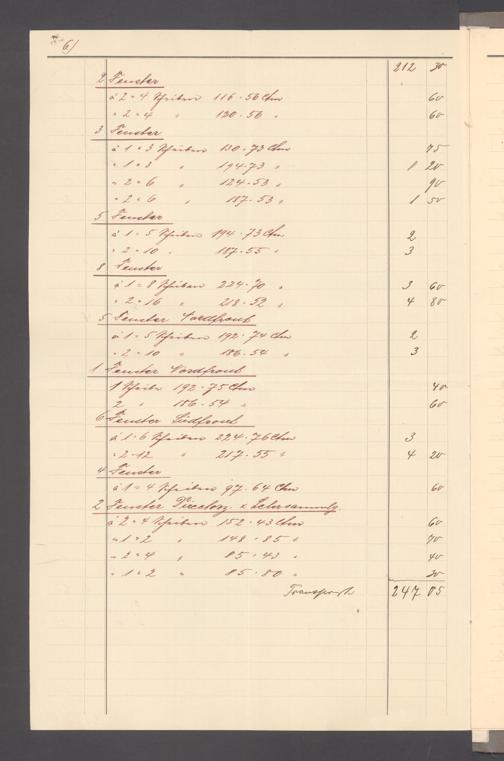 6)
212 30
2 Fenster
à 2 = 4 Scheiben 116 · 56 Ctm 60
" 2 = 4 " 130 · 56 " 60
3 Fenster
à 1 = 3 Scheiben 130 · 73 Ctm 75
" 1 = 3 " 194 · 73 " 1 20
" 2 = 6 " 124 · 53 " 90
" 2 = 6 " 187 · 53 " 1 50
5 Fenster
à 1 = 5 Scheiben 194 · 73 Ctm 2
" 2 = 10 " 187 · 55 " 3
8 Fenster
à 1 = 8 Scheiben 224 · 70 " 3 60
" 2 = 16 " 218 · 52 " 4 80
5 Fenster Nordfront
à 1 = 5 Scheiben 192 · 74 Ctm 2
" 2 = 10 " 186 · 54 " 3
1 Fenster Nordfront
1 Scheibe 192 · 75 Ctm 40
2 " 186 · 54 " 60
6 Fenster Südfront
à 1 = 6 Scheiben 224 · 76 Ctm 3
" 2 = 12 " 217 · 55 " 4 20
4 Fenster
à 1 = 4 Scheiben 97 · 64 Ctm 60
2 Fenster
à 2 = 4 Scheiben 152 · 43 Ctm 60
" 1 = 2 " 148 · 85 " 70
" 2 = 4 " 85 · 43 " 40
" 1 = 2 " 85 · 80 " 30
Transport 247 05